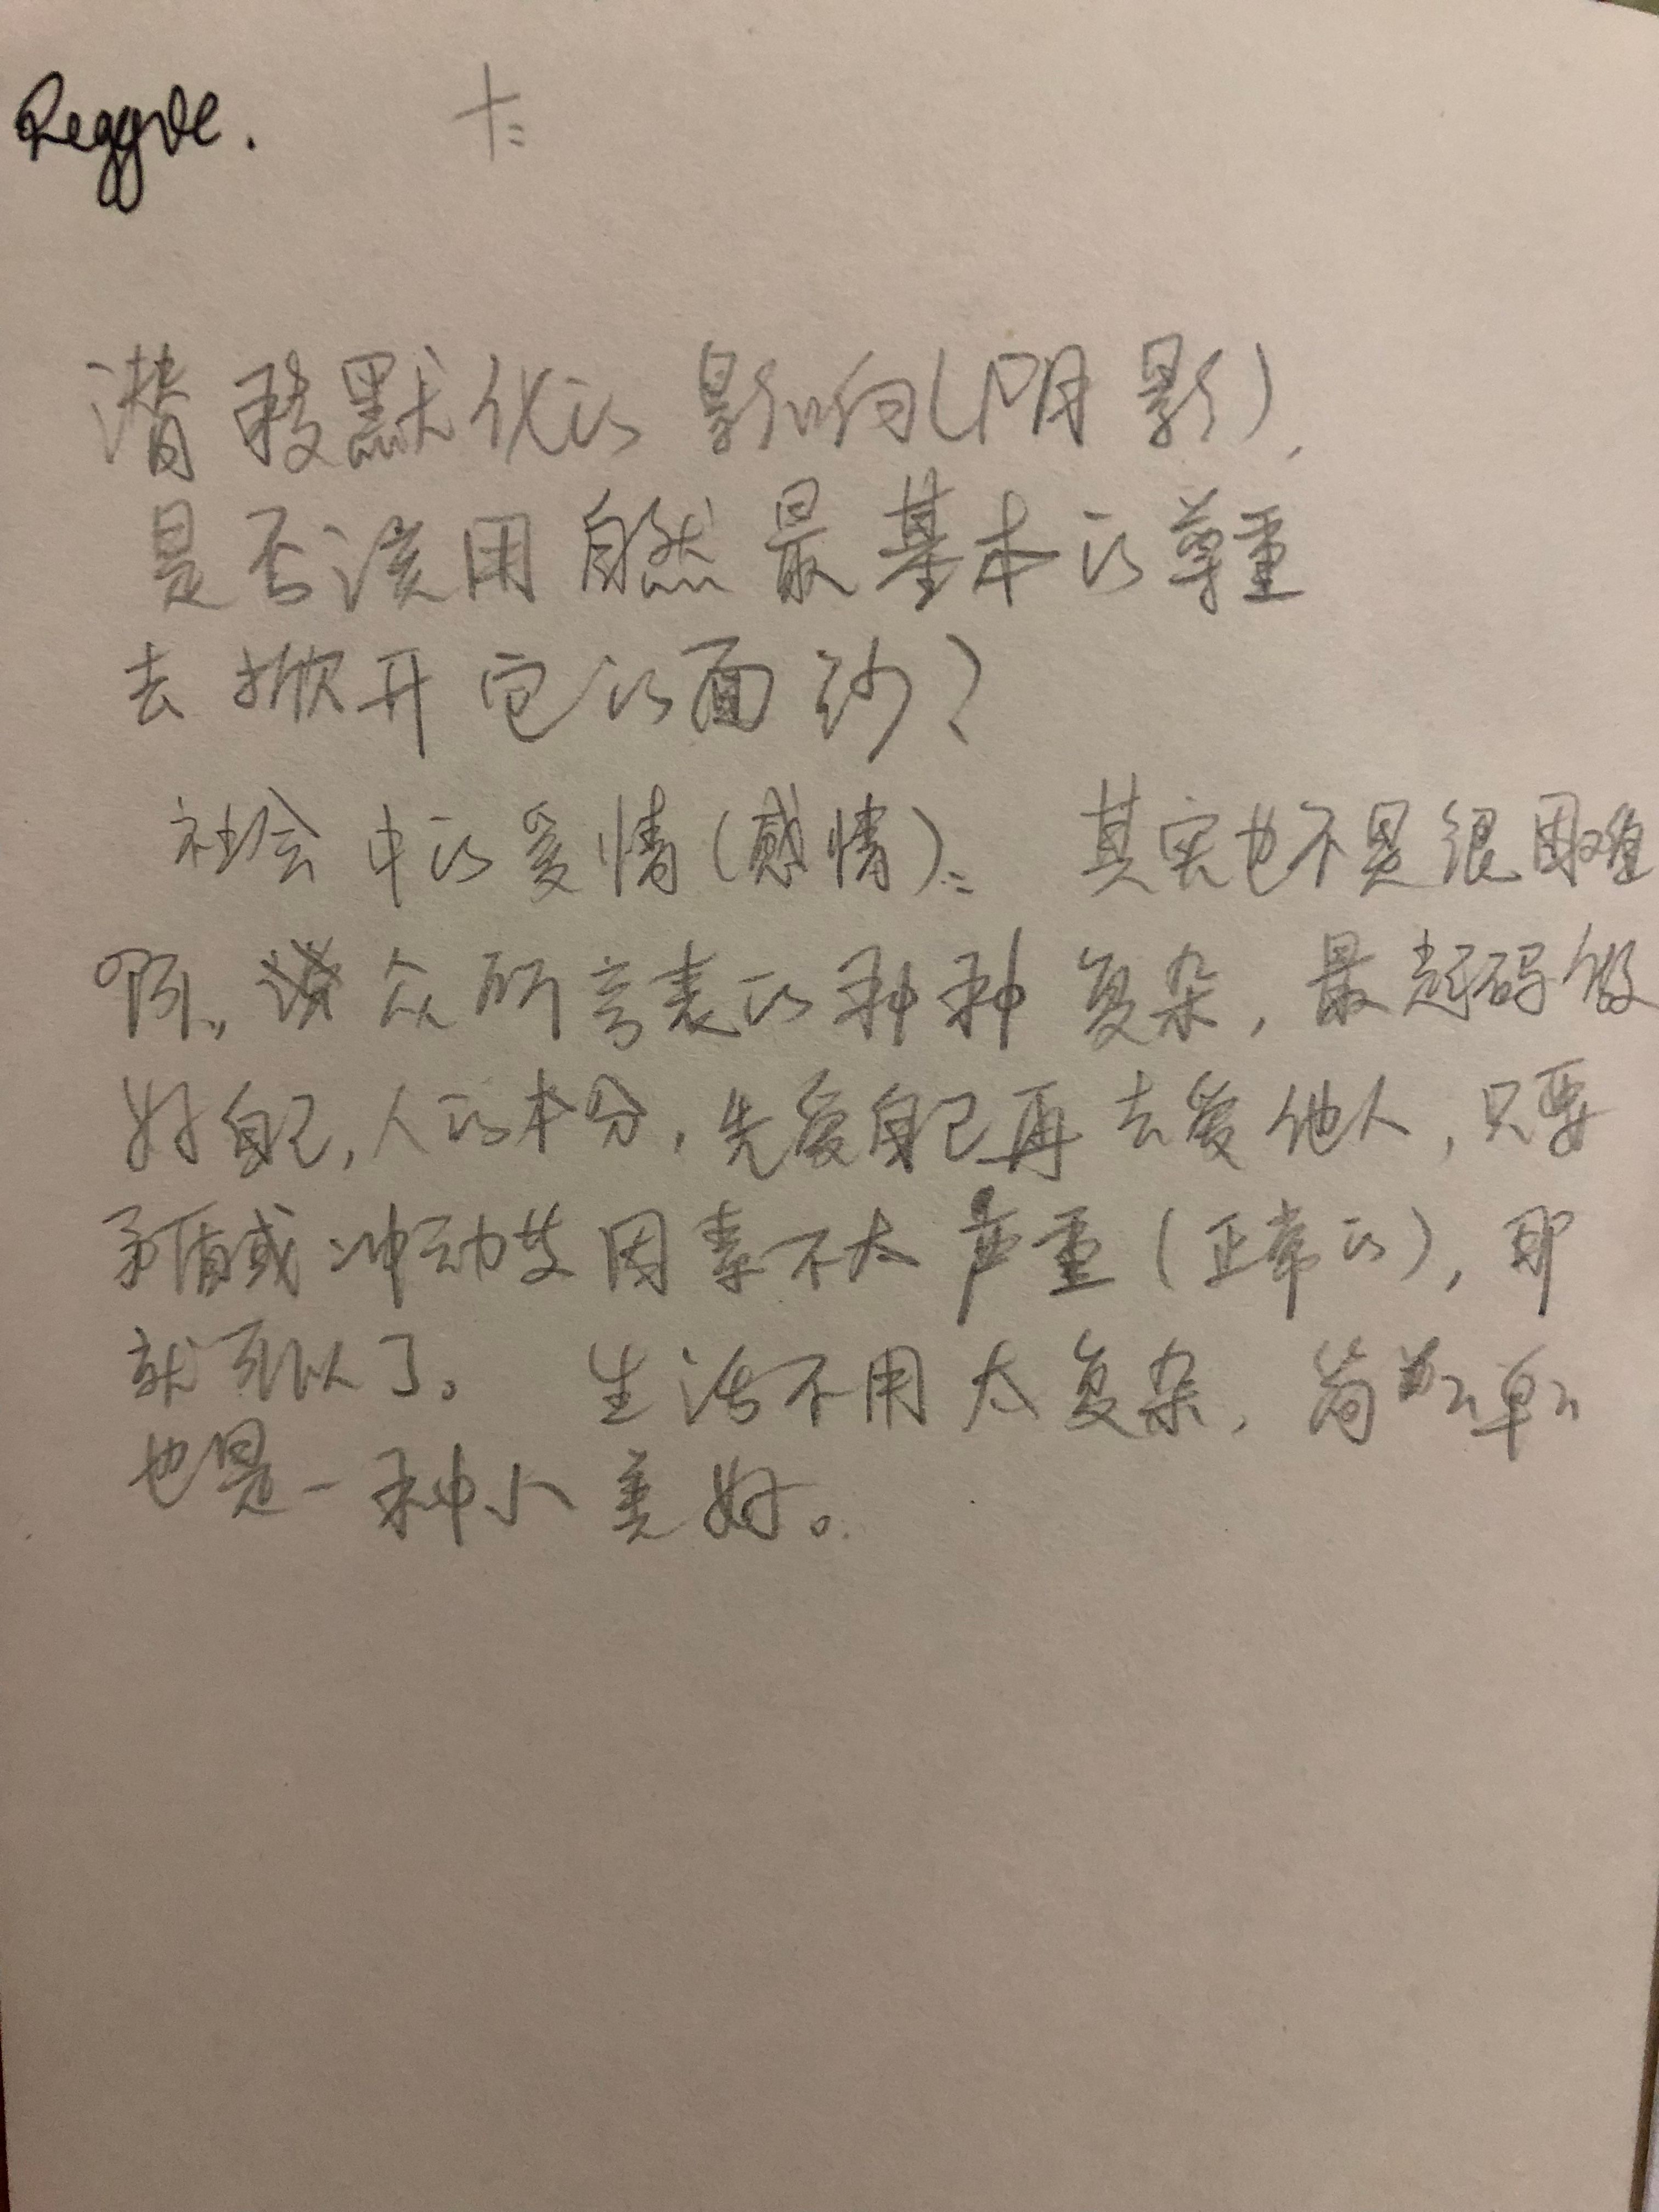 潜移默化的影响(阴影),
是否该用自然最基本的尊重
去掀开它的面纱?
社会中的爱情(感情)、其实也不是很困难
啊,众所言表的种种复杂,最起码做
好自己,人的本分,先爱自己再去爱他人,只要
矛盾或冲动某因素不太严重(正常的),即
就可以了。 生活不用太复杂,简单
也是一种小美好。